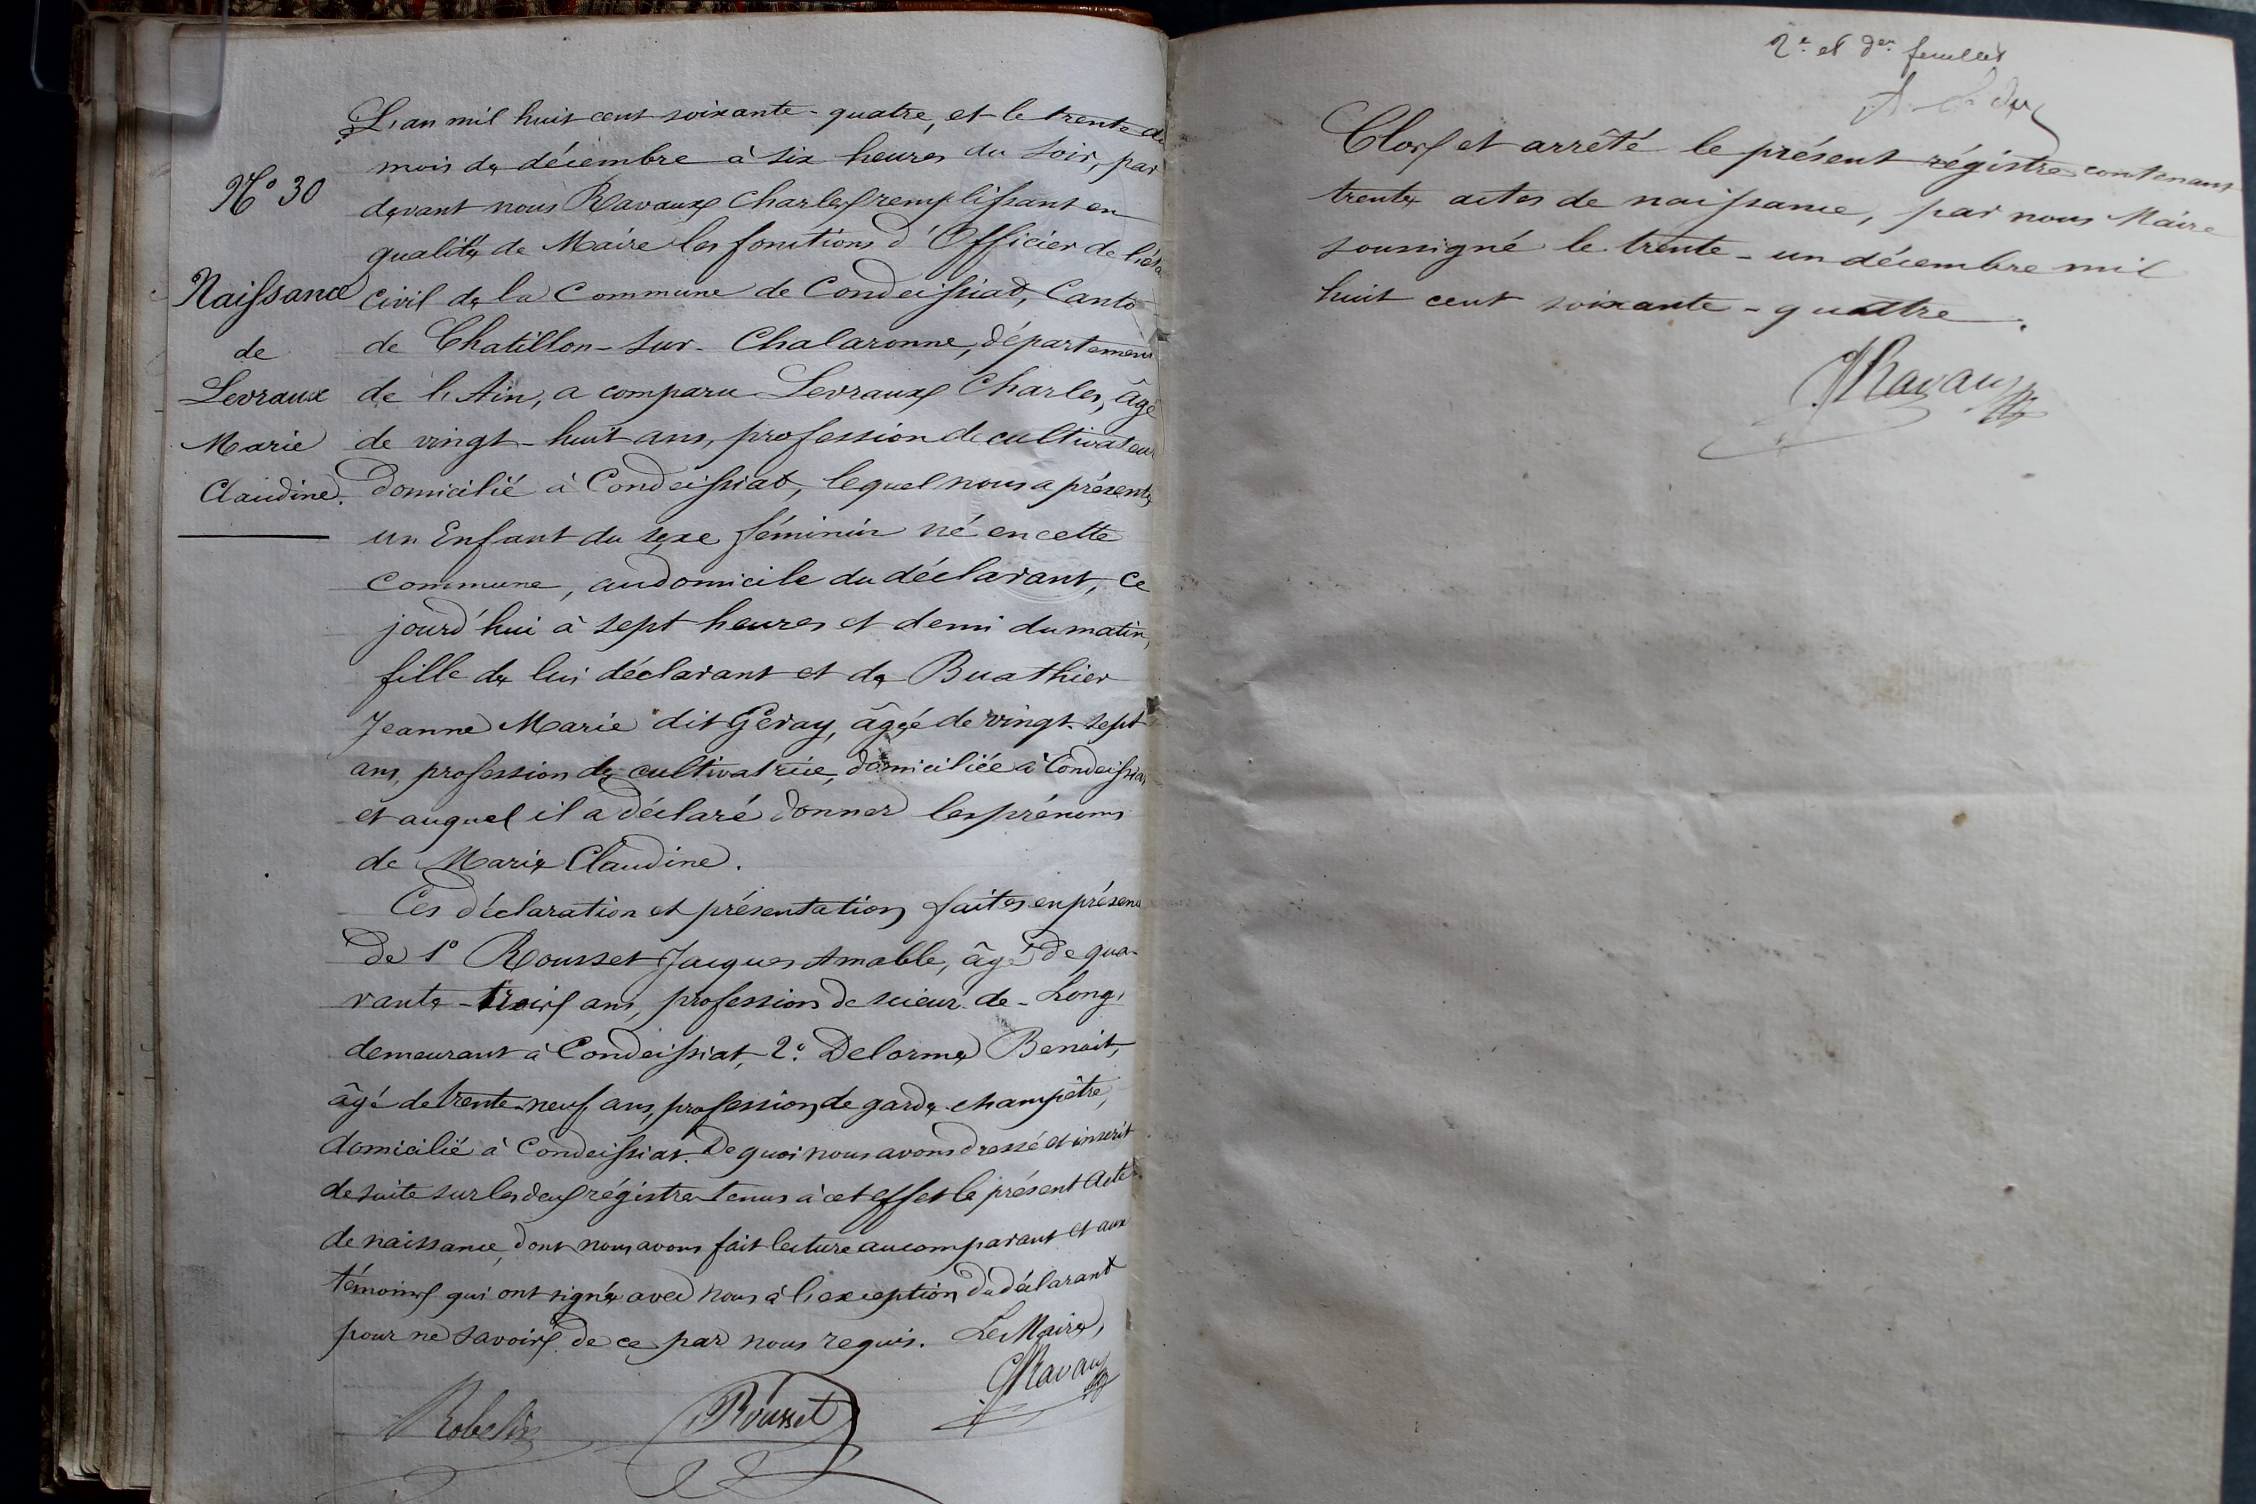 N° 30
Naissance
de
Levraux
Marie
Claudine.
L'an mil huit cent soixante-quatre, et le trente du
mois de décembre à six heures du soir, par
devant nous Ravaux Charles remplissant en
qualité de Maire les fonctions d'Officier de l'état
civil de la Commune de Condeissiat, Canton
de Chatillon-sur-Chalaronne, département
de l'Ain, a comparu Levraux Charles, âgé
de vingt-huit ans, profession de cultivateur
domicilié à Condeissiat, lequel nous a présenté
un Enfant du sexe féminin né en cette
Commune, au domicile du déclarant, ce
jourd'hui à sept heures et demi du matin,
fille de lui déclarant et de Buathier
Jeanne Marie dit Geray, âgé de vingt-sept
ans, profession de cultivatrice, domiciliée à Condeissiat
et auquel il a déclaré donner les prénoms
de Marie Claudine.
Ces déclaration et présentation faites en présence
de 1° Rousset Jacques Amable, âgé de qua-
rante-trois ans, profession de scieur-de-Long,
demeurant à Condeissiat, 2° Delorme Benoit,
âgé de trente-neuf ans, profession de garde-champêtre,
domicilié à Condeissiat. De quoi nous avons dressé et inscrit
de suite sur les deux régistres tenus à cet effet le présent Acte
de naissance, dont nous avons fait lecture au comparant et aux
témoins qui ont signé avec nous à l'exception du déclarant
pour ne savoir de ce par nous requis. Le Maire,
Robelin Rousset CRavaux
2e et der feuillet
Clos et arrêté le présent régistre contenant
trente actes de naissance, par nous Maire
soussigné le trente-un décembre mil
huit cent soixante-quatre.
CRavaux